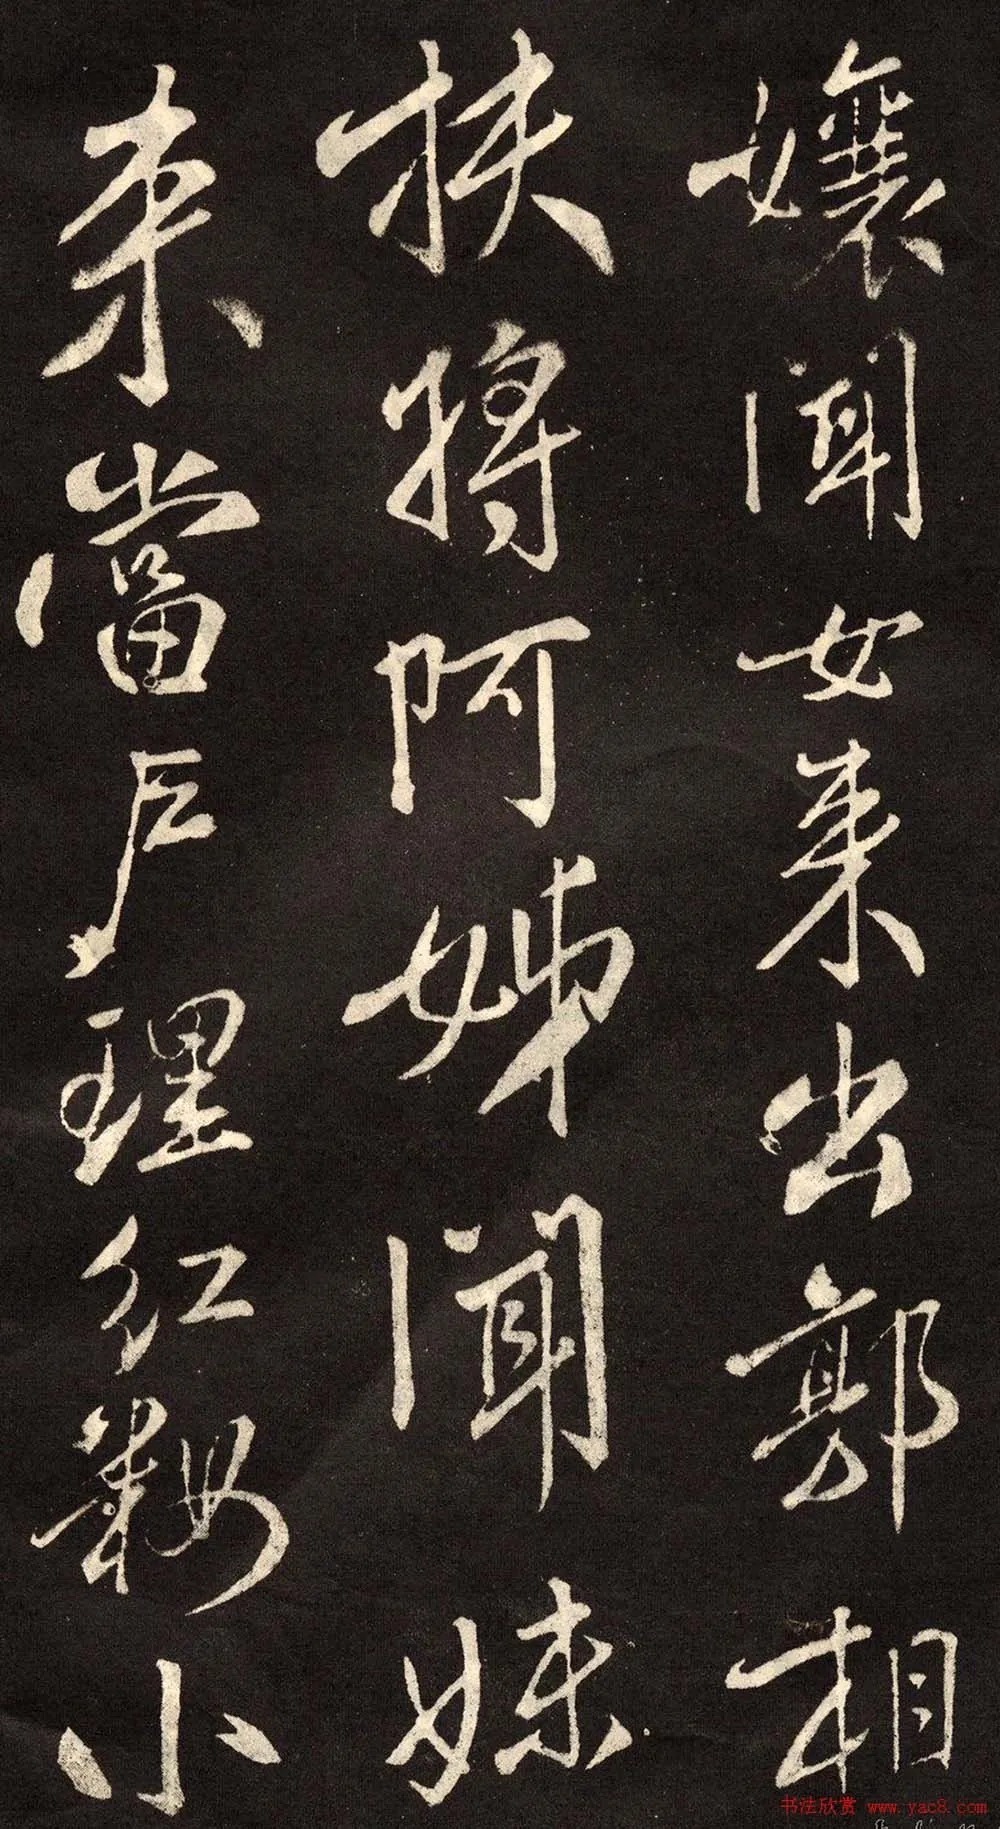 孃聞女来出郭相
扶將阿姊聞妹
来當户理红妝小
书法欣赏 www.yac8.com